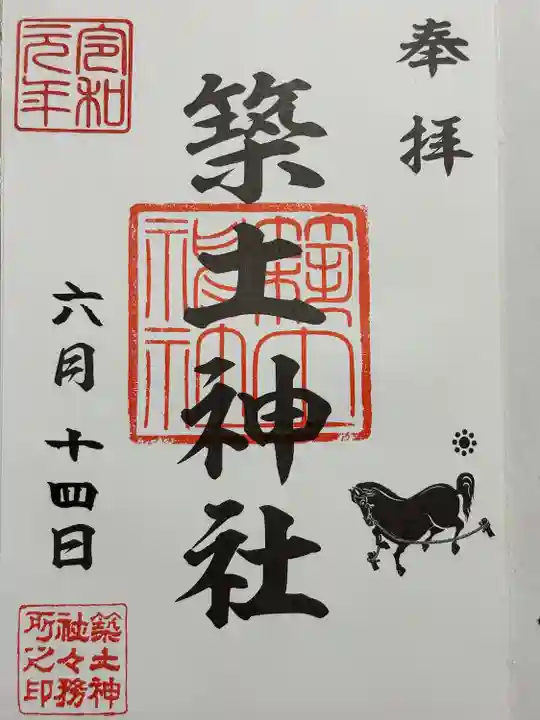 奉拝
築土神社
築土神社
令和元年
六月十四日
築土神社々務所之印